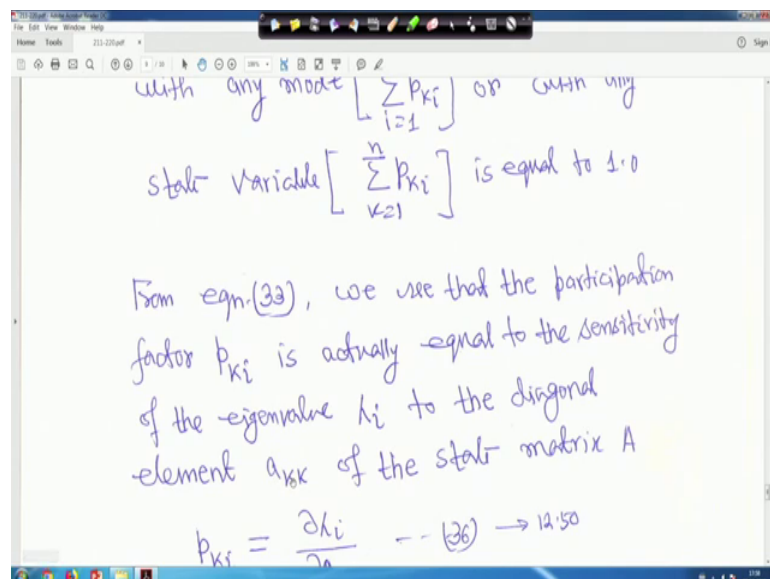 211-220.pdf - Adobe Acrobat Reader DC
File Edit View Window Help
Home Tools 211-220.pdf × Sign
with any mode [ Σ_{i=1} P_{Ki} ] or with any
state variable [ Σ_{K=1}^{n} P_{Ki} ] is equal to 1.0
From eqn.(33), we see that the participation
factor P_{Ki} is actually equal to the sensitivity
of the eigenvalue λ_i to the diagonal
element a_{KK} of the state matrix A
P_{Ki} = ∂λ_i -- (36) → 12.50